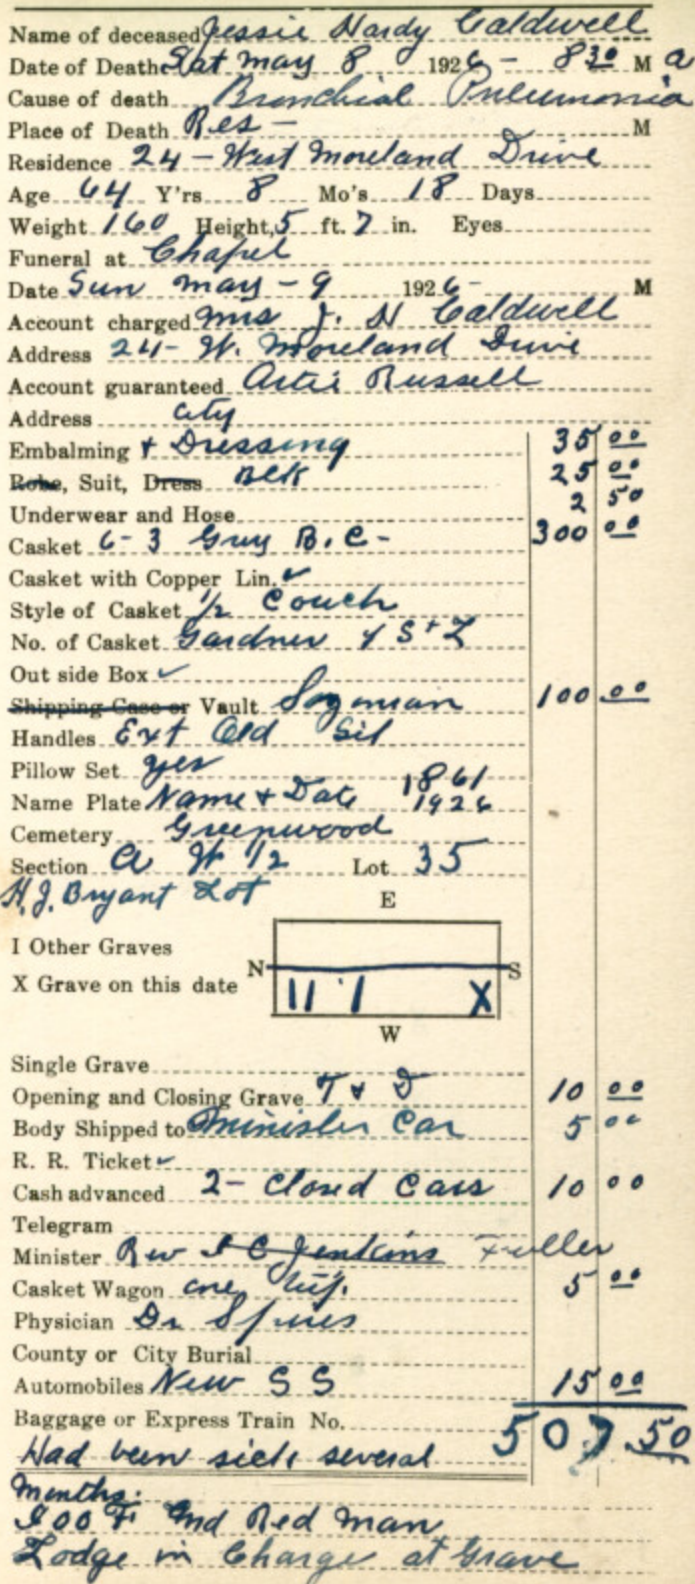 Name of deceased Jessie Hardy Caldwell
Date of Death Sat May 8 1926 - 8 30 M a
Cause of death Bronchial Pneumonia
Place of Death Res - M
Residence 24 - West Moreland Drive
Age 64 Y'rs 8 Mo's 18 Days
Weight 160 Height, 5 ft. 7 in. Eyes
Funeral at Chapel
Date Sun May - 9 1926 - M
Account charged Mrs J. H Caldwell
Address 24 - W. Moreland Drive
Account guaranteed Artie Russell
Address City
Embalming + Dressing 35 00
Robe, Suit, Dress Blk 25 00
Underwear and Hose 2 50
Casket 6-3 Grey B. C - 300 00
Casket with Copper Lin. ✓
Style of Casket 1/2 Couch
No. of Casket Gardner
Out side Box ✓
Shipping Case or Vault 100 00
Handles Ext Old Sil
Pillow Set yes
Name Plate Name + Date 1861 1926
Cemetery Greenwood
Section A W 1/2 Lot 35
H. J. Bryant Lot
E
I Other Graves
N S
X Grave on this date X
W
Single Grave
Opening and Closing Grave T + D 10 00
Body Shipped to Minister Car 5 00
R. R. Ticket ✓
Cash advanced 2 - Closed Cars 10 00
Telegram
Minister Rev Jenkins Fuller
Casket Wagon one 5 00
Physician Dr Spires
County or City Burial
Automobiles New S S 15 00
Baggage or Express Train No. 507.50
Had been sick several
Months.
I O O F And Red Man
Lodge in Charge at Grave